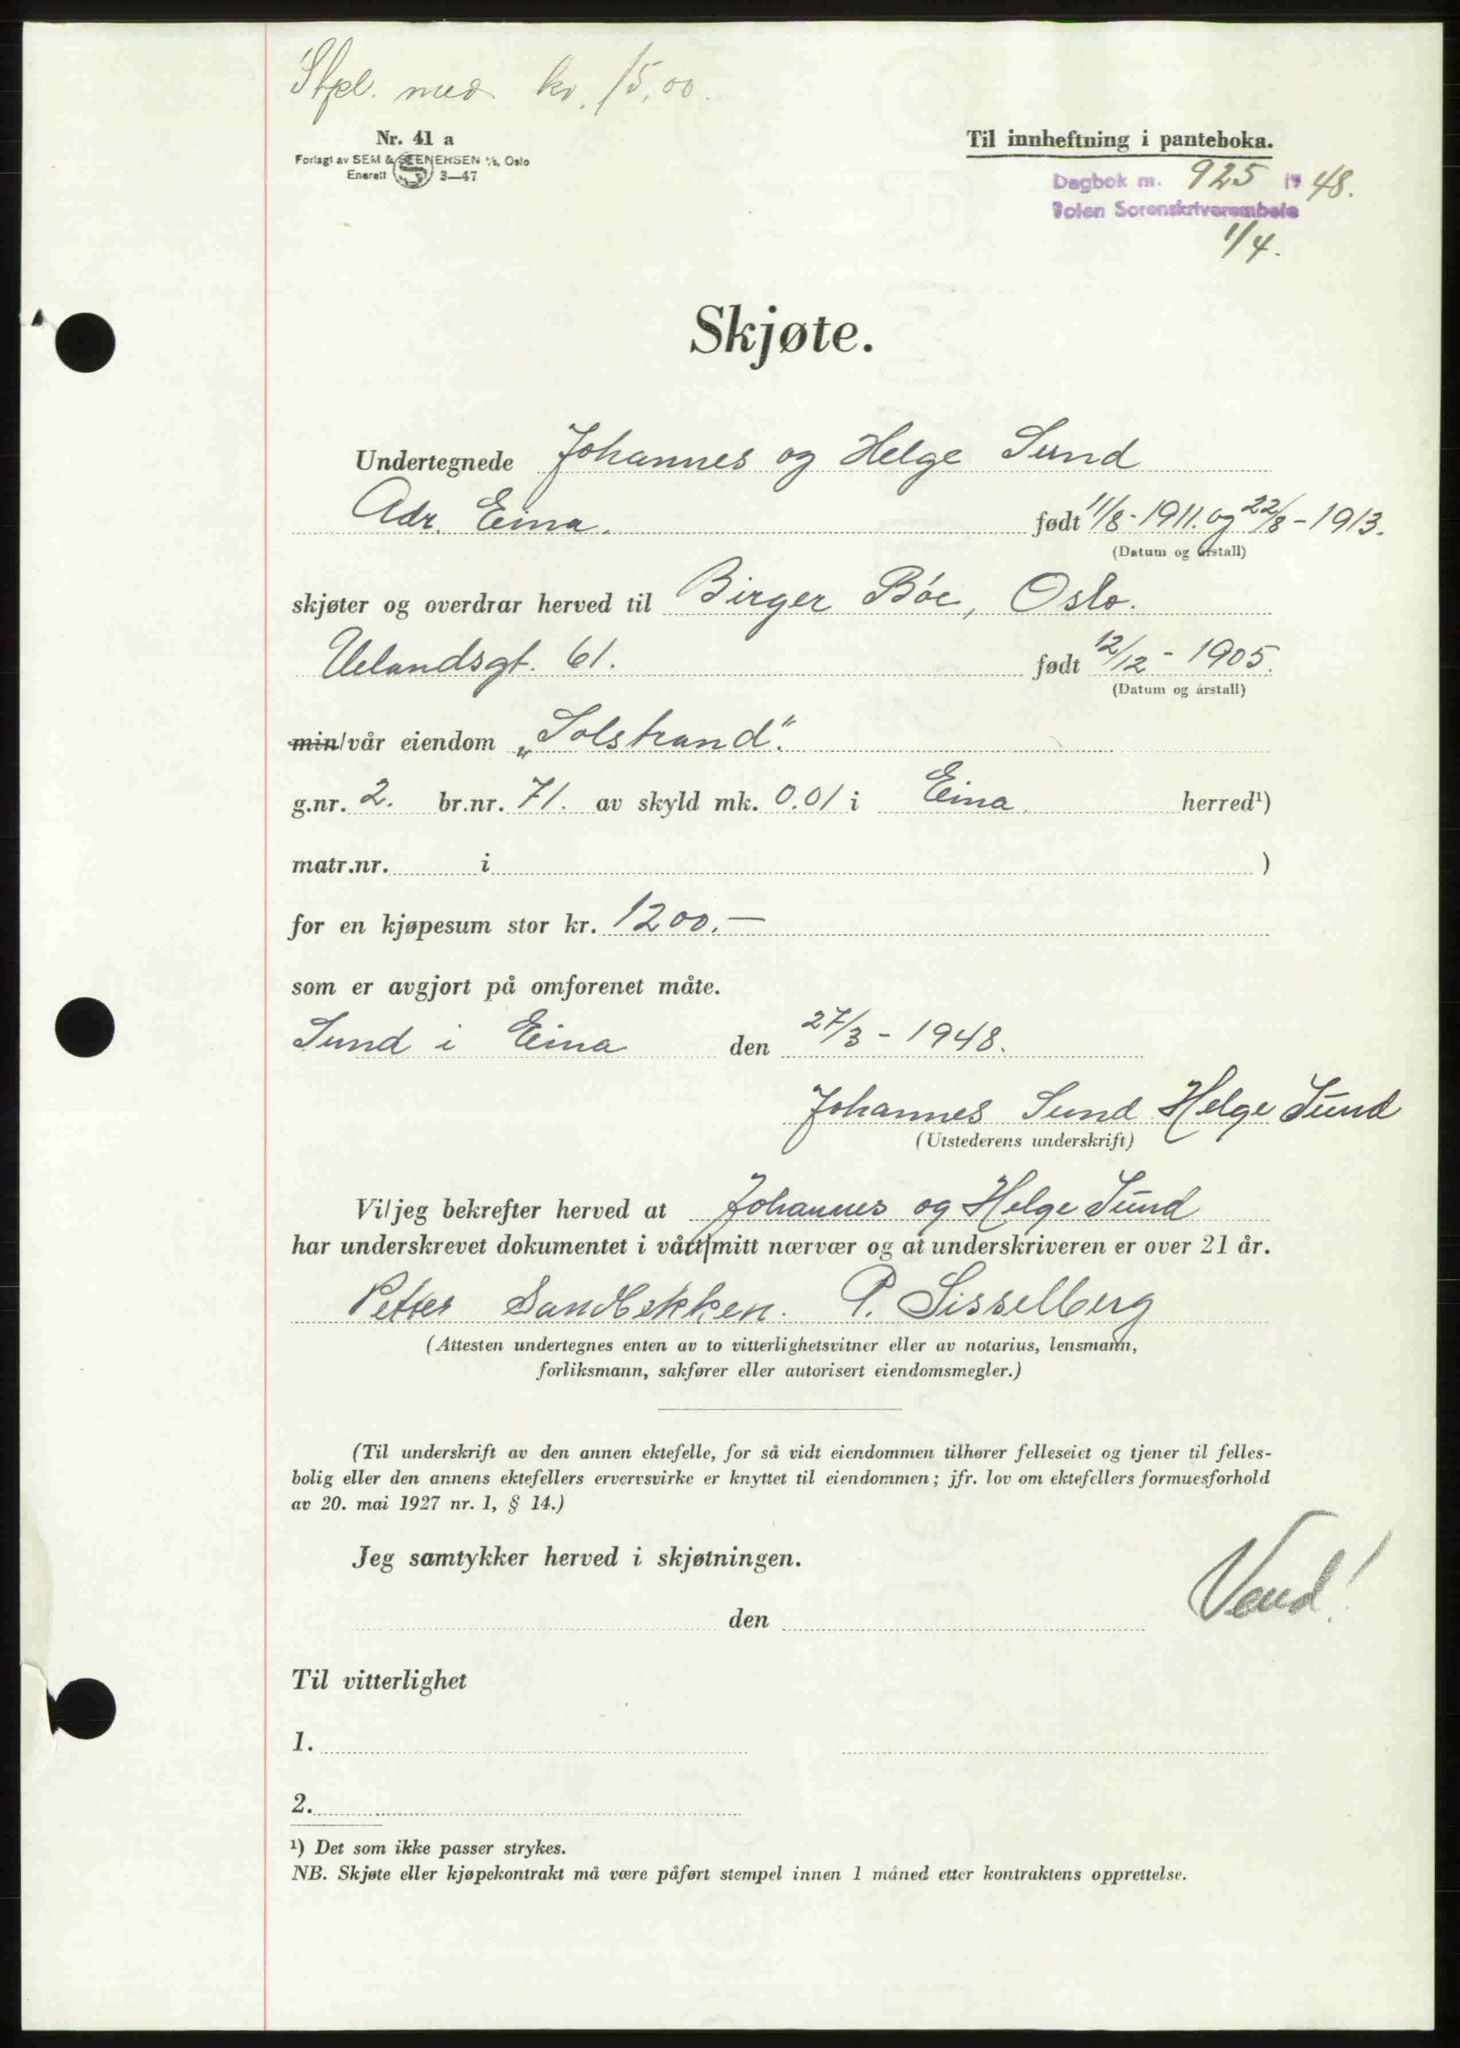 Stpl. med kr. 15,00.
Nr. 41 a
Forlagt av SEM & STENERSEN A/S, Oslo
Enerett 3—47
Til innheftning i panteboka.
Dagbok nr. 925 19 48.
Toten Sorenskriverembete
1/4.
Skjøte.
Undertegnede Johannes og Helge Sund
Adr. Eina. født 11/8-1911. og 22/8-1913.
(Datum og årstall)
skjøter og overdrar herved til Birger Bøe, Oslo.
Uelandsgt. 61. født 12/12-1905.
(Datum og årstall)
min/vår eiendom „Solstrand".
g.nr. 2. br.nr. 71. av skyld mk. 0.01 i Eina. herred¹)
matr.nr. i )
for en kjøpesum stor kr. 1200.—
som er avgjort på omforenet måte.
Sund i Eina den 27/3-1948.
Johannes Sund Helge Sund
(Utstederens underskrift)
Vi/jeg bekrefter herved at Johannes og Helge Sund
har underskrevet dokumentet i vårt/mitt nærvær og at underskriveren er over 21 år.
Petter Sandbekken. P. Sisselberg
(Attesten undertegnes enten av to vitterlighetsvitner eller av notarius, lensmann,
forliksmann, sakfører eller autorisert eiendomsmegler.)
(Til underskrift av den annen ektefelle, for så vidt eiendommen tilhører felleseiet og tjener til felles-
bolig eller den annens ektefellers ervervsvirke er knyttet til eiendommen; jfr. lov om ektefellers formuesforhold
av 20. mai 1927 nr. 1, § 14.)
Jeg samtykker herved i skjøtningen.
Vend!
den
Til vitterlighet
1.
2.
¹) Det som ikke passer strykes.
NB. Skjøte eller kjøpekontrakt må være påført stempel innen 1 måned etter kontraktens opprettelse.